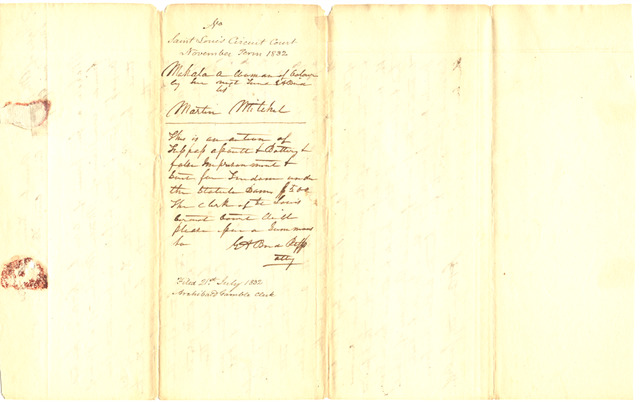 No
Saint Louis Circuit Court
November Term 1832
Mehala a woman of Colour
by her next friend
vs
Martin Mitchel
This is an action of
Trespass assault & Battery &
false Imprisonment &
Suit for freedom under
the Statute Dam $500
The clerk of St Louis
Circuit Court will
please issue a Summons
&c
Atty
Filed 21st July 1832
Archibald Gamble Clerk